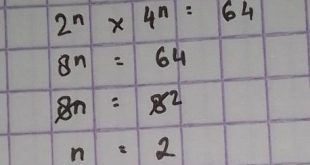 2ⁿ × 4ⁿ = 64
8ⁿ = 64
8ⁿ = 8²
n = 2